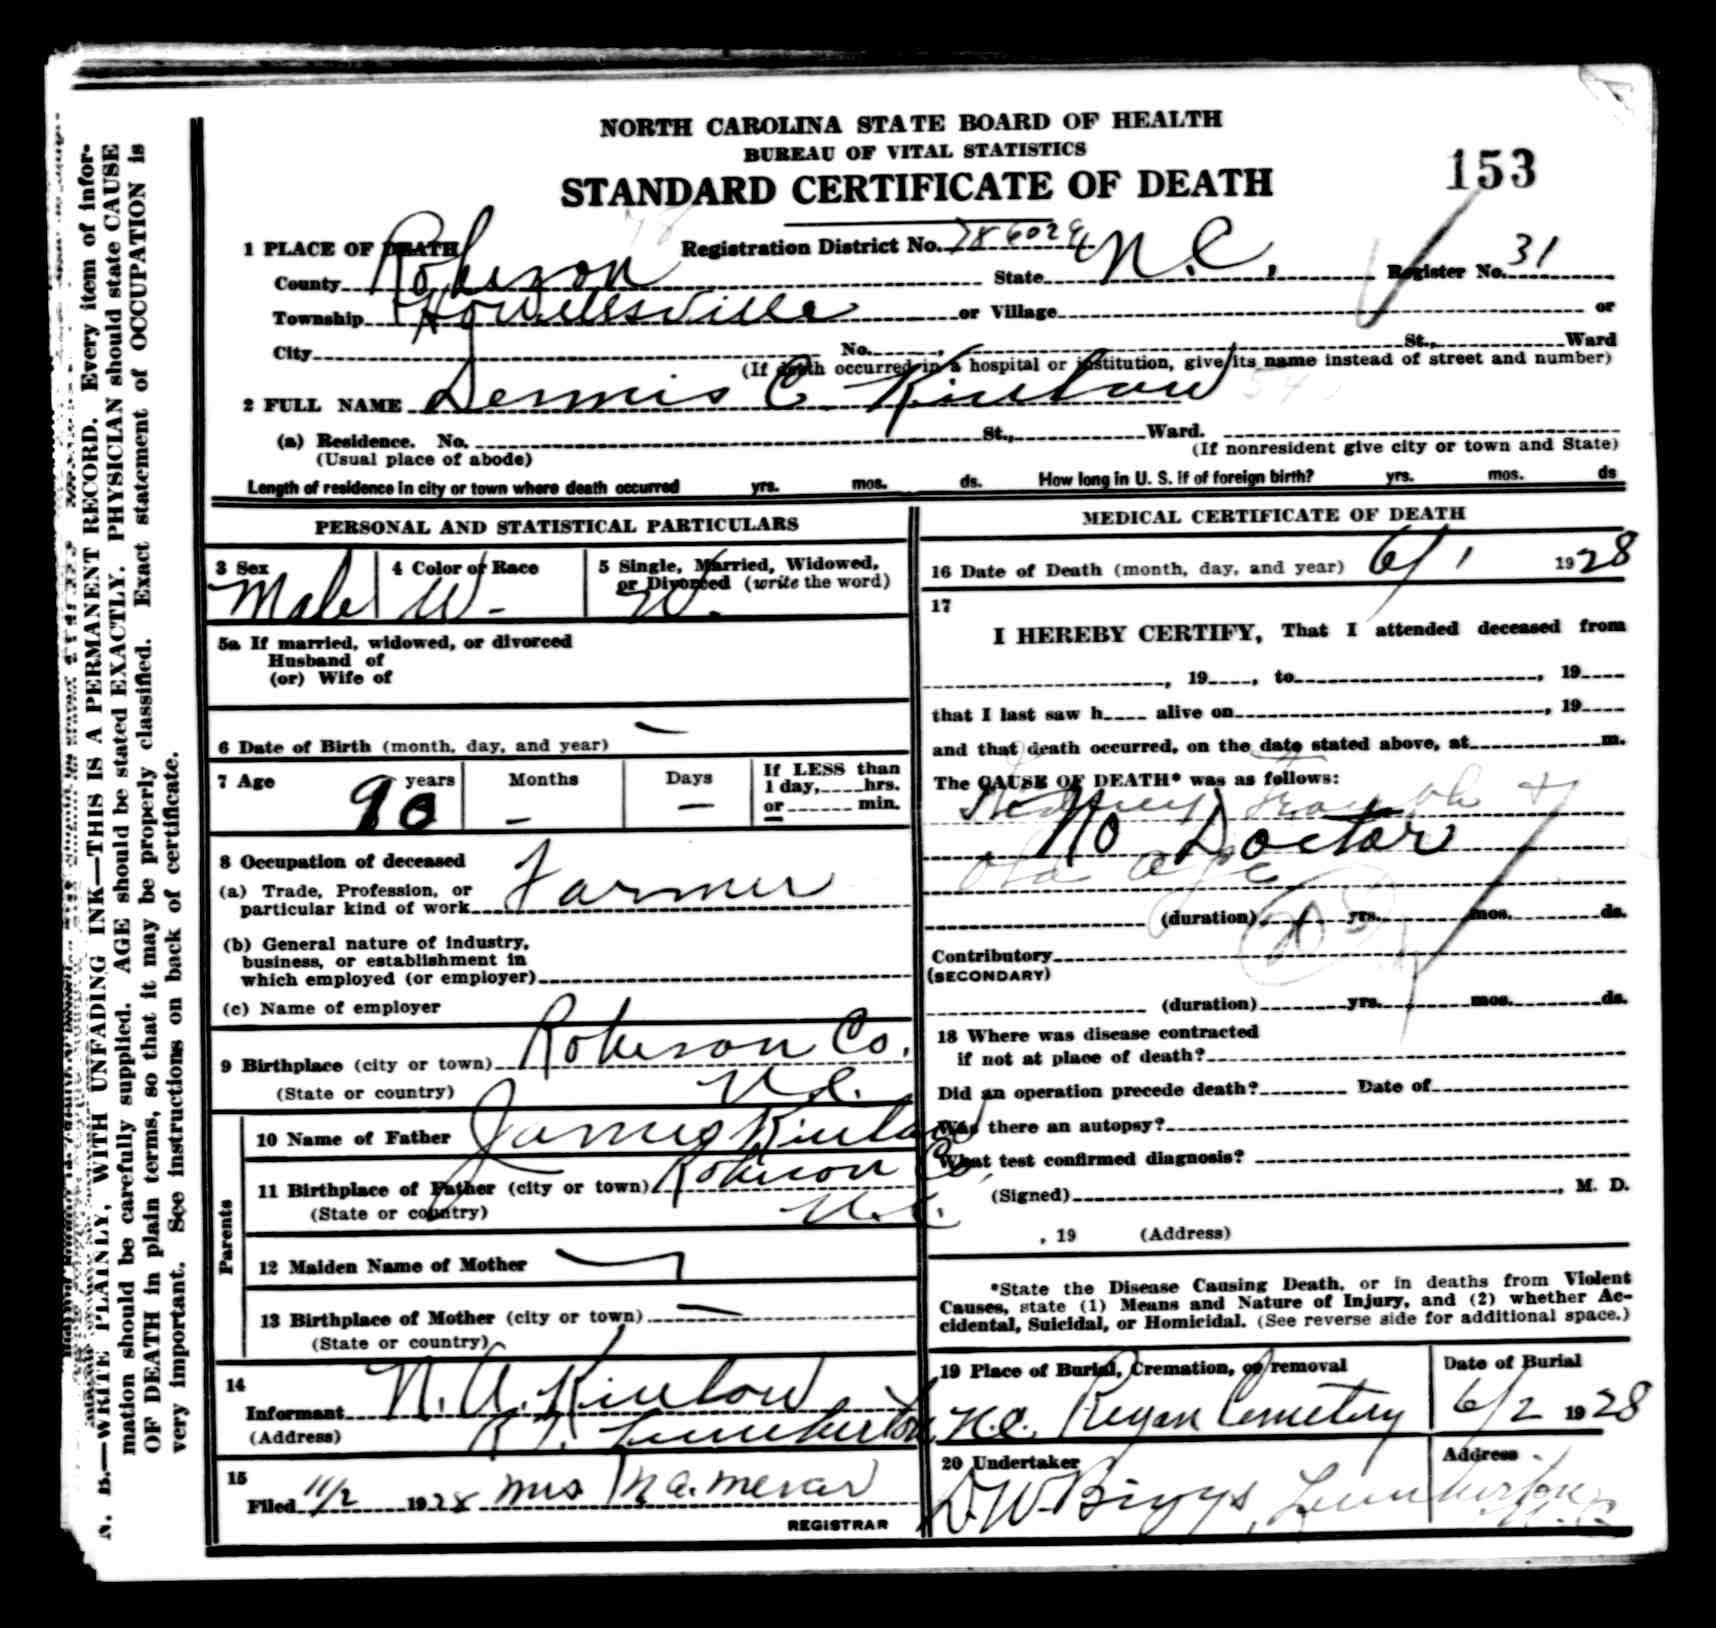 NORTH CAROLINA STATE BOARD OF HEALTH
BUREAU OF VITAL STATISTICS
STANDARD CERTIFICATE OF DEATH
153
1 PLACE OF DEATH
Registration District No. 786024
County Robeson State N.C. Register No. 31
Township Howellsville or Village or
City No. St., Ward
(If death occurred in a hospital or institution, give its name instead of street and number)
2 FULL NAME Dennis C Kinlaw
(a) Residence. No. St., Ward.
(Usual place of abode) (If nonresident give city or town and State)
Length of residence in city or town where death occurred yrs. mos. ds. How long in U. S. if of foreign birth? yrs. mos. ds
PERSONAL AND STATISTICAL PARTICULARS
3 Sex
Male
4 Color or Race
W-
5 Single, Married, Widowed,
or Divorced (write the word)
W.
5a If married, widowed, or divorced
Husband of
(or) Wife of
6 Date of Birth (month, day, and year) —
7 Age 90 years
Months -
Days —
If LESS than
1 day, hrs.
or min.
8 Occupation of deceased
(a) Trade, Profession, or
particular kind of work Farmer
(b) General nature of industry,
business, or establishment in
which employed (or employer)
(c) Name of employer
9 Birthplace (city or town) Robeson Co.
(State or country) N.C.
Parents
10 Name of Father James Kinlaw
11 Birthplace of Father (city or town) Robeson Co.
(State or country) N.C.
12 Maiden Name of Mother —
13 Birthplace of Mother (city or town) —
(State or country)
14
Informant N. A. Kinlaw
(Address) Lumberton N.C.
15
Filed 11/2 1928 Mrs
REGISTRAR
MEDICAL CERTIFICATE OF DEATH
16 Date of Death (month, day, and year) 6/1 1928
17
I HEREBY CERTIFY, That I attended deceased from
, 19 , to , 19
that I last saw h alive on , 19
and that death occurred, on the date stated above, at m.
The CAUSE OF DEATH* was as follows:
Kidney Trouble +
No Doctor
old age
(duration) yrs. mos. ds.
Contributory
(SECONDARY)
(duration) yrs. mos. ds.
18 Where was disease contracted
if not at place of death?
Did an operation precede death? Date of
Was there an autopsy?
What test confirmed diagnosis?
(Signed) , M. D.
, 19 (Address)
*State the Disease Causing Death, or in deaths from Violent
Causes, state (1) Means and Nature of Injury, and (2) whether Ac-
cidental, Suicidal, or Homicidal. (See reverse side for additional space.)
19 Place of Burial, Cremation, or removal
Regan Cemetery
Date of Burial
6/2 1928
20 Undertaker
D.W. Biggs,
Address
Lumberton
N.C.
N. B.—WRITE PLAINLY, WITH UNFADING INK—THIS IS A PERMANENT RECORD. Every item of infor-
mation should be carefully supplied. AGE should be stated EXACTLY. PHYSICIAN should state CAUSE
OF DEATH in plain terms, so that it may be properly classified. Exact statement of OCCUPATION is
very important. See instructions on back of certificate.